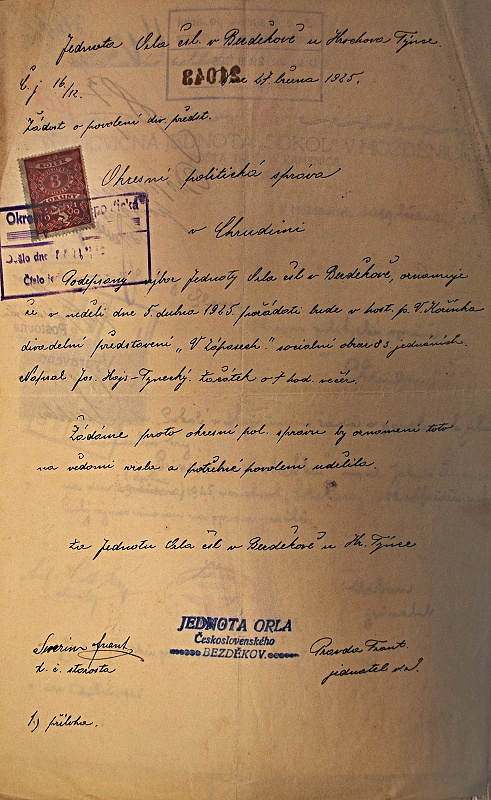 Jednota Orla čsl. v Bezděkově u Hrochova Týnce.
Č. j. 16/12.
dne 27. března 1925.
Žádost o povolení div. předst.
Okresní politická správa
v Chrudimi
Podepsaný výbor Jednoty Orla čsl v Bezděkově, oznamuje
že v neděli dne 5. dubna 1925 pořádati bude v host. p. V. Kořínka
divadelní představení „V zápasech." socialní obraz o 3. jednáních.
Napsal Jos. Hajs-Týnecký. Začátek o 7 hod. večer.
Žádáme proto okresní pol. správu by oznámení toto
na vědomí vzala a potřebné povolení udělila.
Za Jednotu Orla čsl v Bezděkově u Hr. Týnce
JEDNOTA ORLA
Československého
BEZDĚKOV.
t. č. starosta
Pravda Frant.
jednatel
1) příloha.
KOLEK
KORUNY
Došlo dne
Číslo